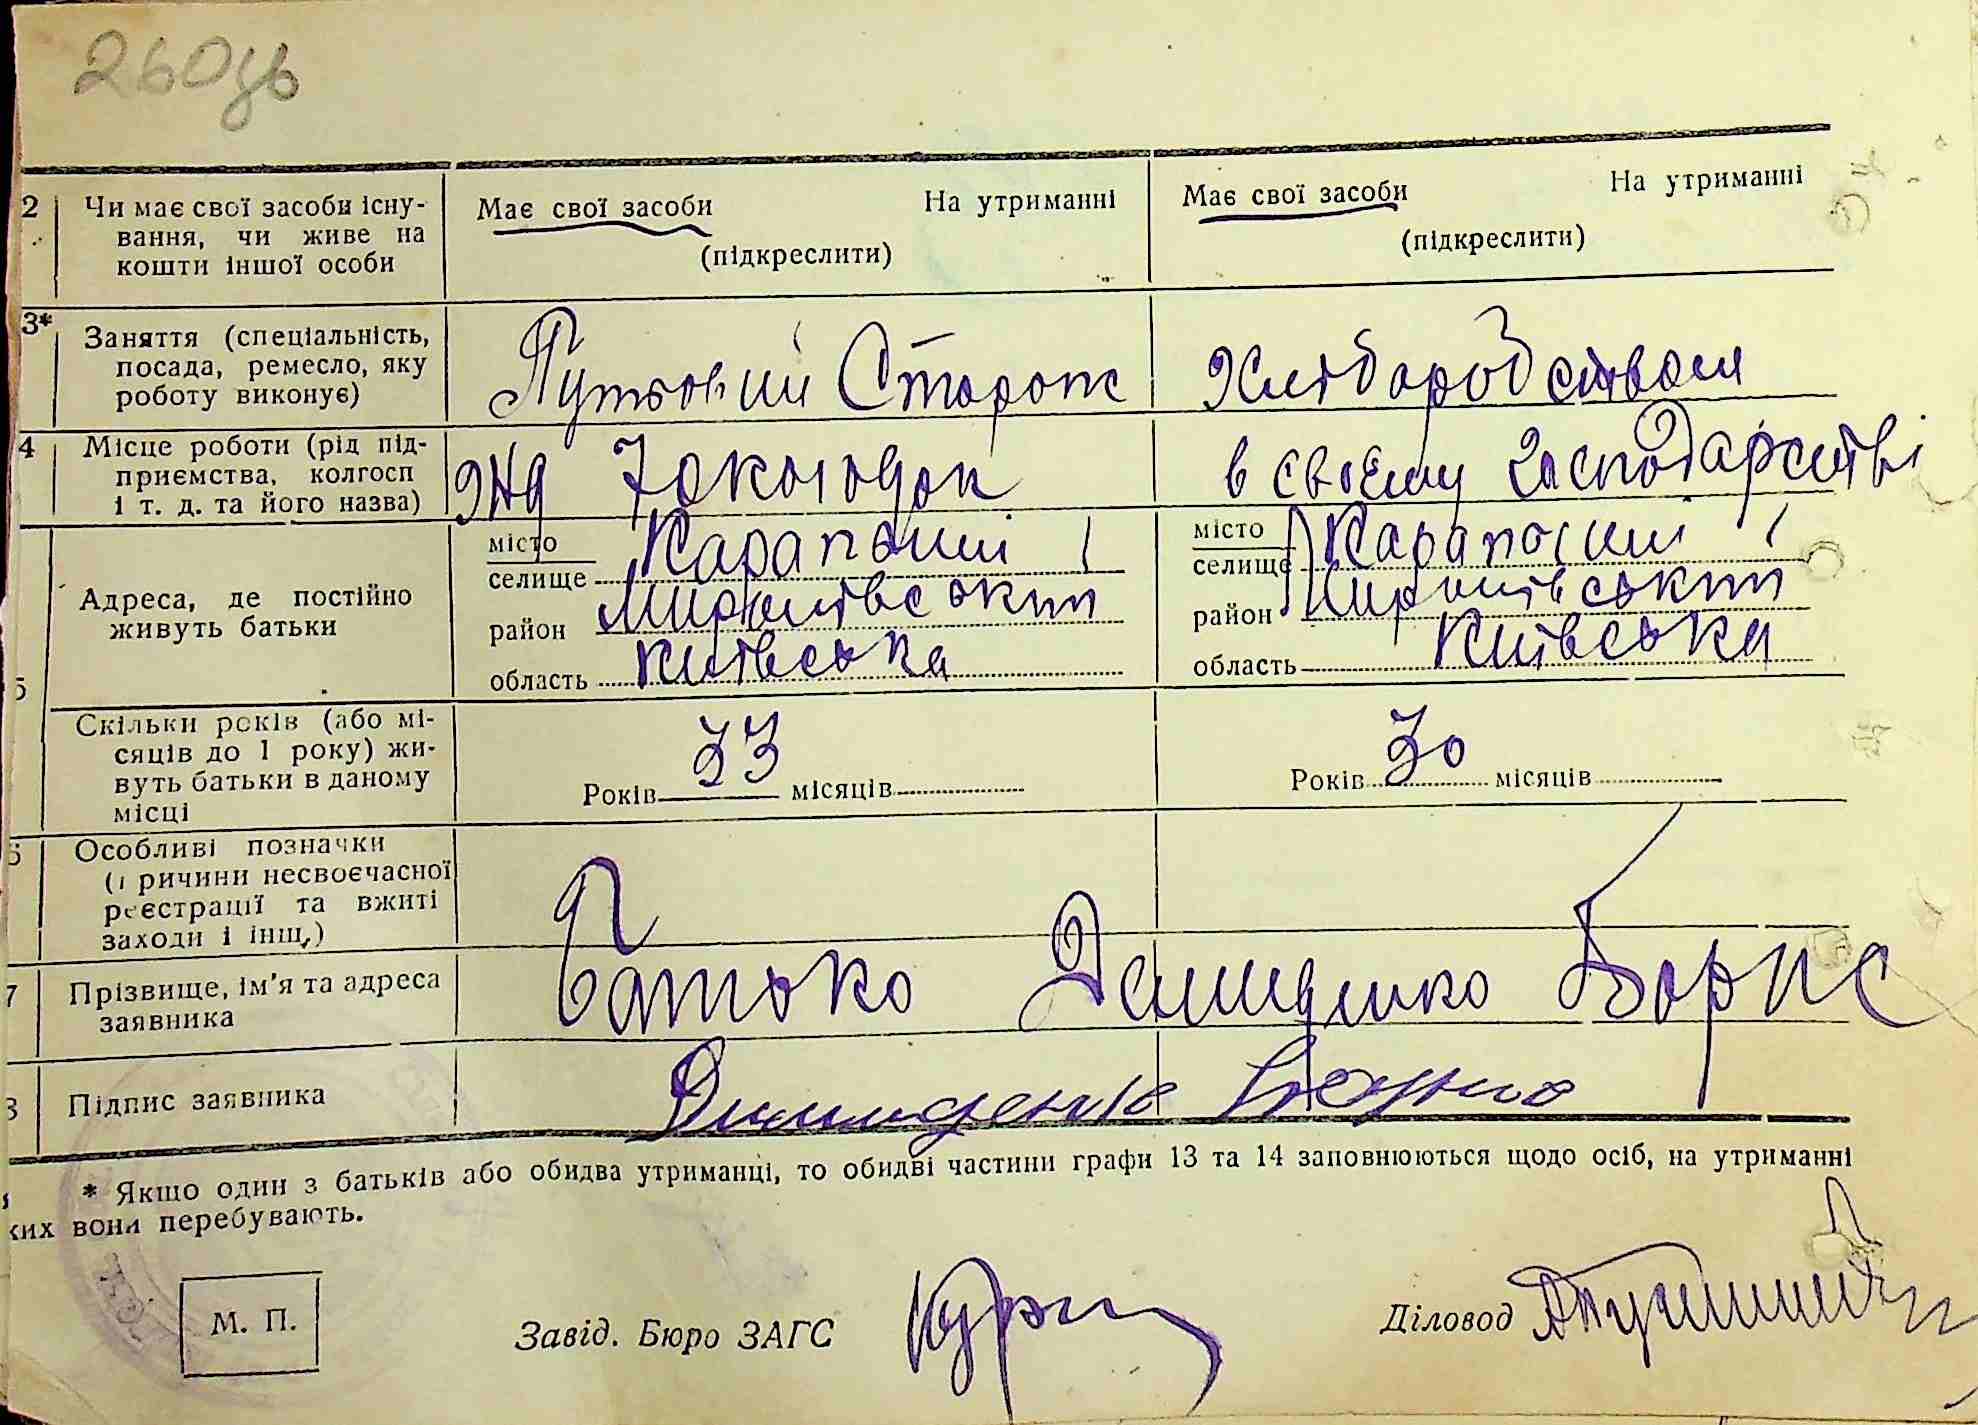 2
Чи має свої засоби існу-
вання, чи живе на
кошти іншої особи
Має свої засоби На утриманні
(підкреслити)
Має свої засоби На утриманні
(підкреслити)
3*
Заняття (спеціальність,
посада, ремесло, яку
роботу виконує)
Путьовий Сторож
Хліборобством
4
Місце роботи (рід під-
приємства, колгосп
і т. д. та його назва)
в своему господарстві
5
Адреса, де постійно
живуть батьки
місто
селище Карапиші
район Миронівський
область Київська
місто
селище Карапиші
район Миронівський
область Київська
Скільки років (або мі-
сяців до 1 року) жи-
вуть батьки в даному
місці
Років 33 місяців
Років 30 місяців
6
Особливі позначки
(причини несвоєчасної
реєстрації та вжиті
заходи і інш.)
7
Прізвище, ім'я та адреса
заявника
Батько Демиденко Борис
8
Підпис заявника
* Якщо один з батьків або обидва утриманці, то обидві частини графи 13 та 14 заповнюються щодо осіб, на утриманні
ких вони перебувають.
М. П.
Завід. Бюро ЗАГС
Діловод